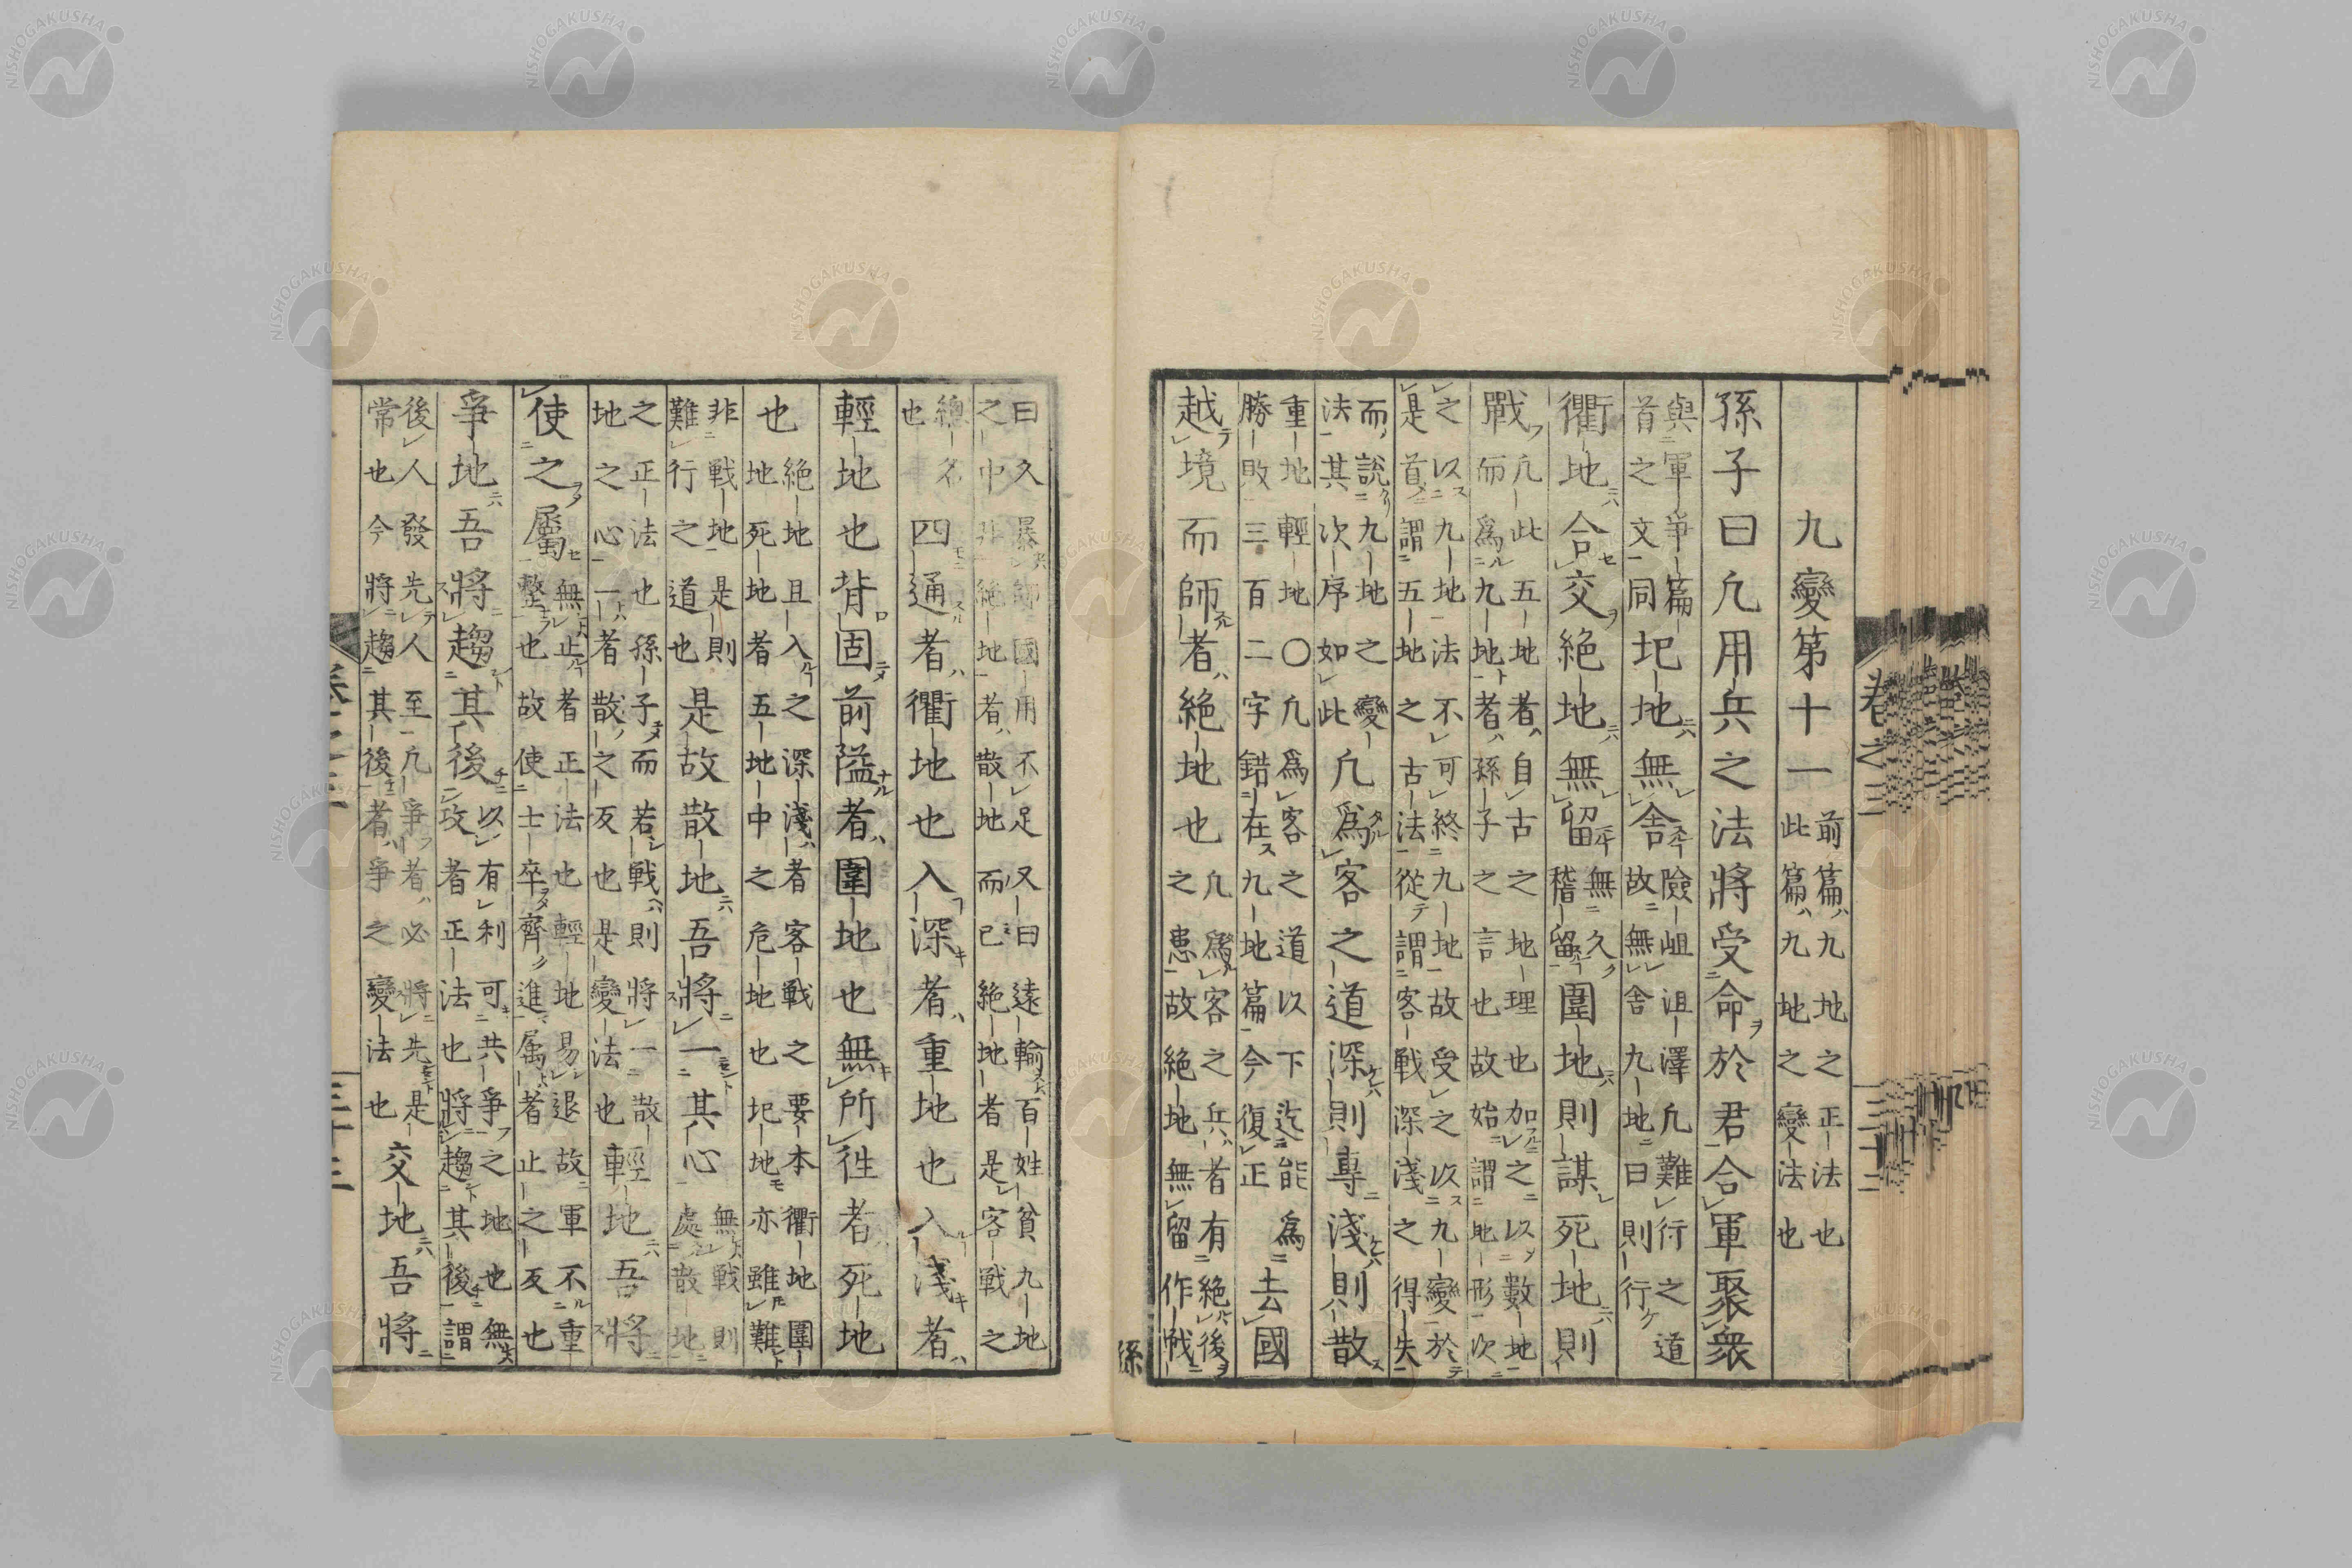 九變第十一
前篇ハ九地之正法也
此篇ハ九地之變法也
孫子曰凢用兵之法將受命於君合軍聚衆
與軍爭篇
首之文同
圮地無舍
險岨沮澤凢難行之道
故無舍九地曰則行
衢地合交絶地無留
無久
稽留
圍地則謀死地則
戰
凢此五地者自古之地理也加之以數地
而爲九地者孫子之言也故始謂地形次
之以九地法不可終九地故受之以九變於
是首謂五地之古法從謂客戰深淺之得失
而說九地之變
法其次序如此
凢爲客之道深則專淺則散
重地輕地〇凢爲客之道以下迄能爲
勝敗三百二字錯在九地篇今復正
去國
越境而師者絶地也
凢爲客之兵者有絶後
之患故絶地無留作戦
孫
卷之三
三十二
曰久暴師國用不足又曰遠輸百姓貧九地
之中非絶地者散地而已絶地者是客戰之
總名
也
四通者衢地也入深者重地也入淺者
輕地也背固前隘者圍地也無所徃者死地
也
絶地且入之深淺者客戰之要本衢地圍
地死地者五地中之危地也圮地亦雖難
非戰地是則
難行之道也
是故散地吾將一其心
無戰則
處散地
之正法也孫子而若戰則將一散
地之心一者散之反也是變法也
輕地吾將
使之屬
無止者正法也輕地易退故軍不重
整也故使士卒齊進属者止之反也
爭地吾將趨其後
以有利可共爭之地也無
攻者正法也將趨其後謂
後人發先人至凢爭者必將先是
常也今將趨其後者爭之變法也
交地吾將